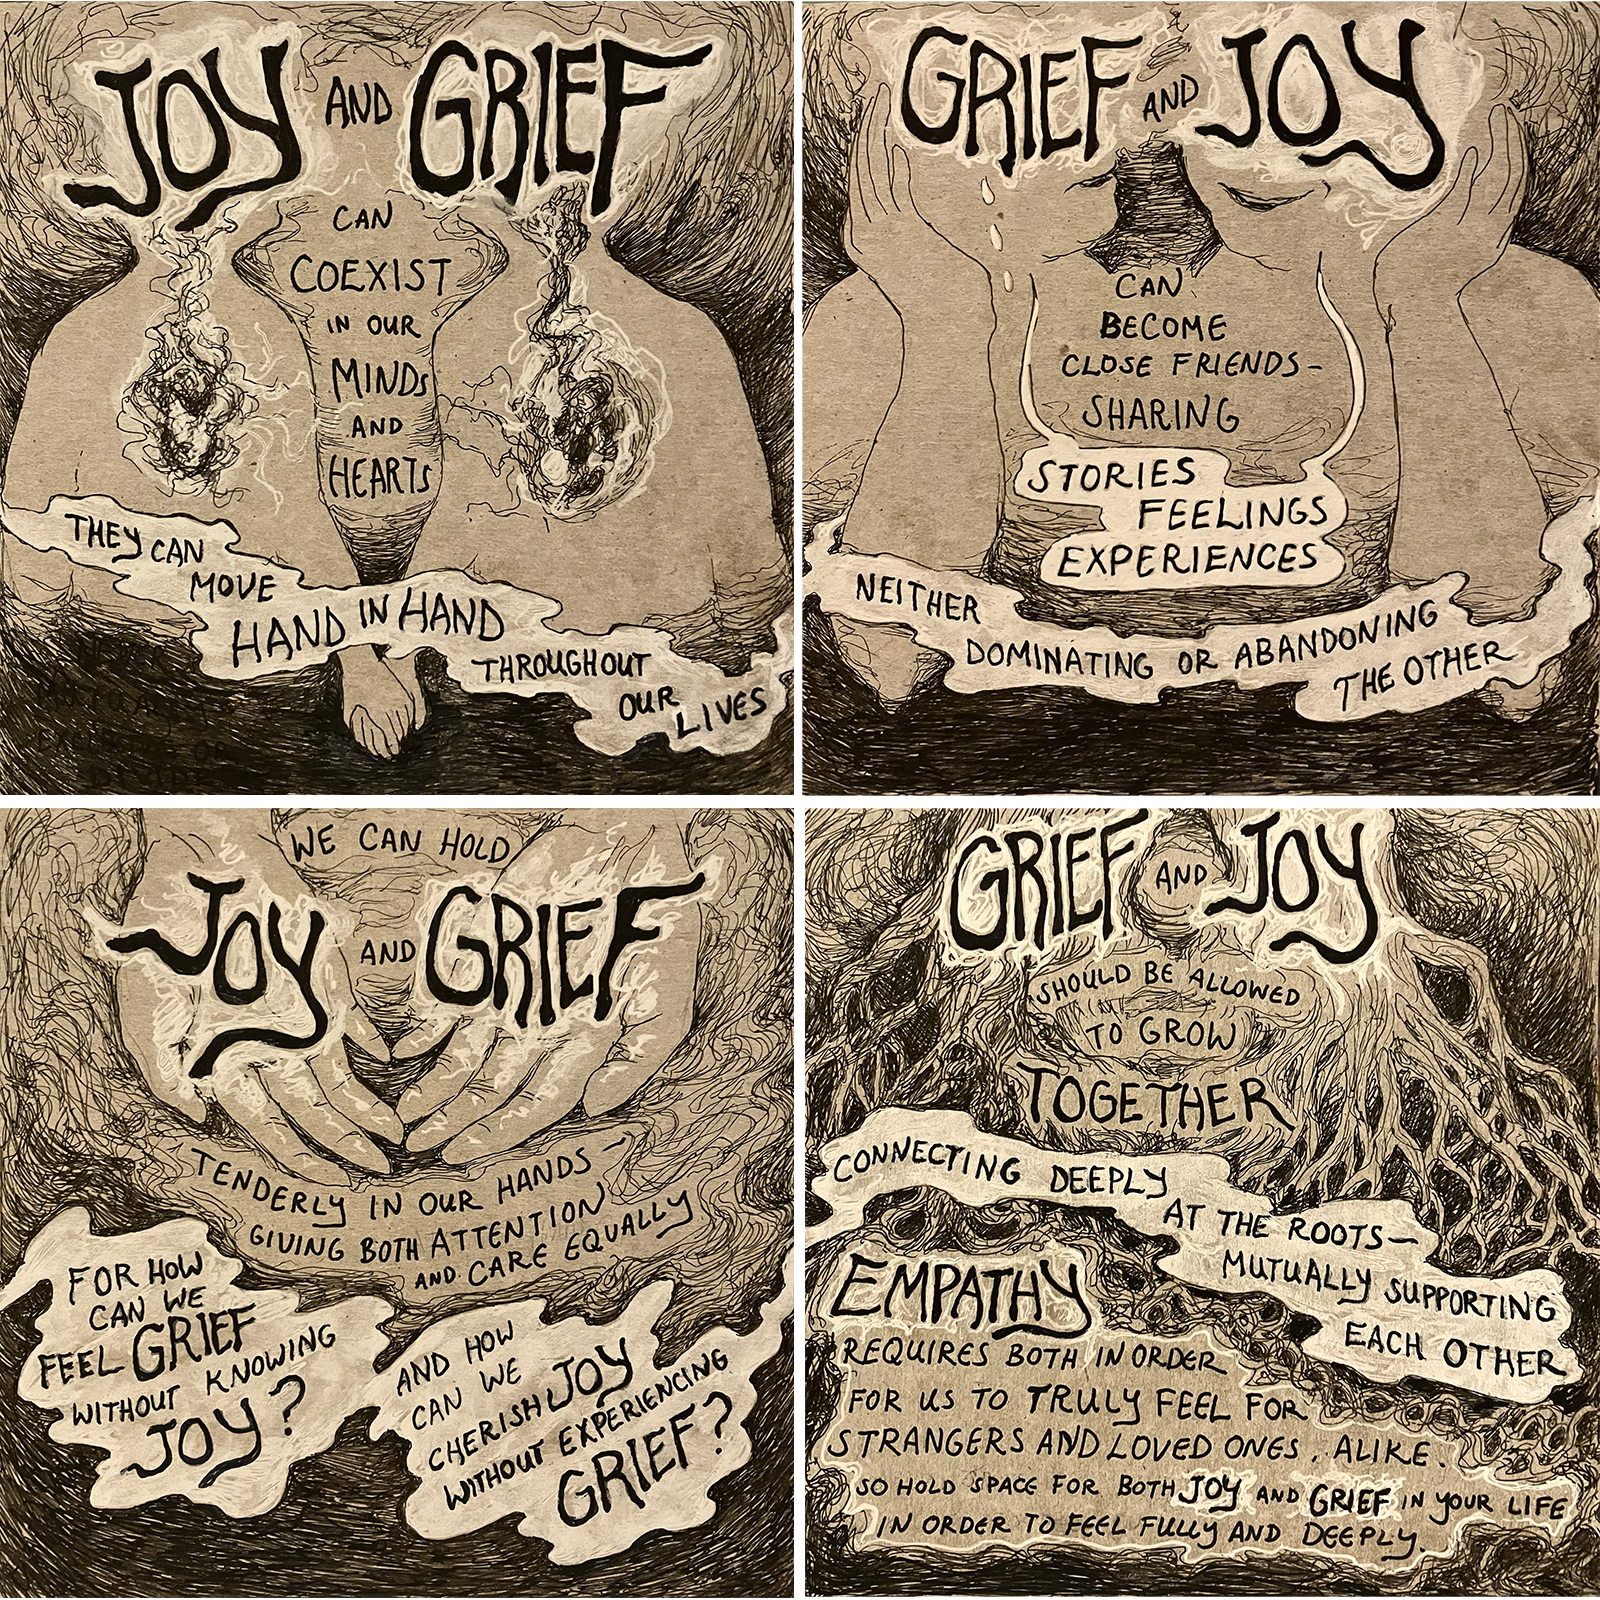 JOY AND GRIEF
CAN
COEXIST
IN OUR
MINDS
AND
HEARTS
THEY CAN
MOVE
HAND IN HAND
THROUGHOUT
OUR
LIVES
GRIEF AND JOY
CAN
BECOME
CLOSE FRIENDS-
SHARING
STORIES
FEELINGS
EXPERIENCES
NEITHER
DOMINATING OR ABANDONING
THE OTHER
WE CAN HOLD
JOY AND GRIEF
TENDERLY IN OUR HANDS-
GIVING BOTH ATTENTION
AND CARE EQUALLY
FOR HOW
CAN WE
FEEL GRIEF
WITHOUT KNOWING
JOY?
AND HOW
CAN WE
CHERISH JOY
WITHOUT EXPERIENCING
GRIEF?
GRIEF AND JOY
SHOULD BE ALLOWED
TO GROW
TOGETHER
CONNECTING DEEPLY
AT THE ROOTS-
MUTUALLY SUPPORTING
EACH OTHER
EMPATHY
REQUIRES BOTH IN ORDER
FOR US TO TRULY FEEL FOR
STRANGERS AND LOVED ONES, ALIKE.
SO HOLD SPACE FOR BOTH JOY AND GRIEF IN YOUR LIFE
IN ORDER TO FEEL FULLY AND DEEPLY.